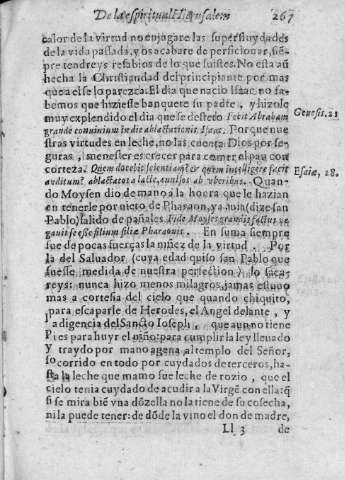 De la espiritual Hierusalem 267
calor de la virtud no enjugare las superfluydades
de la vida passada, y os acabare de perficionar, siẽ-
pre tendreys resabios de lo que fuistes. No esta aũ
hecha la Christiandad del principiante por mas
que a el se lo parezca. El dia que nacio Isaac no sa-
bemos que hiziesse banquete su padre, y hizole
muy explendido el dia que se desteto Fecit Abraham
grande conuiuium in die ablactationis Isaac. Porque nue
stras virtudes en leche, no las cuenta Dios por se-
guras, menester es crecer para comer el pan con
corteza. Quem docebit scientiam? & quem intelligere faciet
auditum? ablactatos a lacte, auulsos ab vberibus. Quan-
do Moysen dio de mano a la honra que le hazian
en tenerle por nieto de Pharaon, ya auia (dize san
Pablo) salido de pañales. Fide Moyses grandis factus ne-
gauit se esse filium filiæ Pharaonis. En suma siempre
fue de pocas fuerças la niñez de la virtud. Por
la del Saluador (cuya edad quiso san Pablo que
fuesse, medida de nuestra perfection) lo sacas
reys: nunca hizo menos milagros, jamas estuuo
mas a cortesia del cielo que quando chiquito,
para escaparle de Herodes, el Angel delante, y
la diligencia del Sancto Ioseph, que aun no tiene
pies para huyr el niño: para cumplir la ley lleuado
y traydo por mano agena al templo del Señor,
socorrido en todo por cuydados de terceros, ha-
sta la leche que mamo fue leche de rozio, que el
cielo tenia cuydado de acudir a la Virgẽ con ella: q̃
si se mira biẽ vna dõzella no la tiene de su cosecha,
ni la puede tener: de dõde la vino el don de madre,
Ll 3 de
Genesis. 21
Esaiæ, 28.